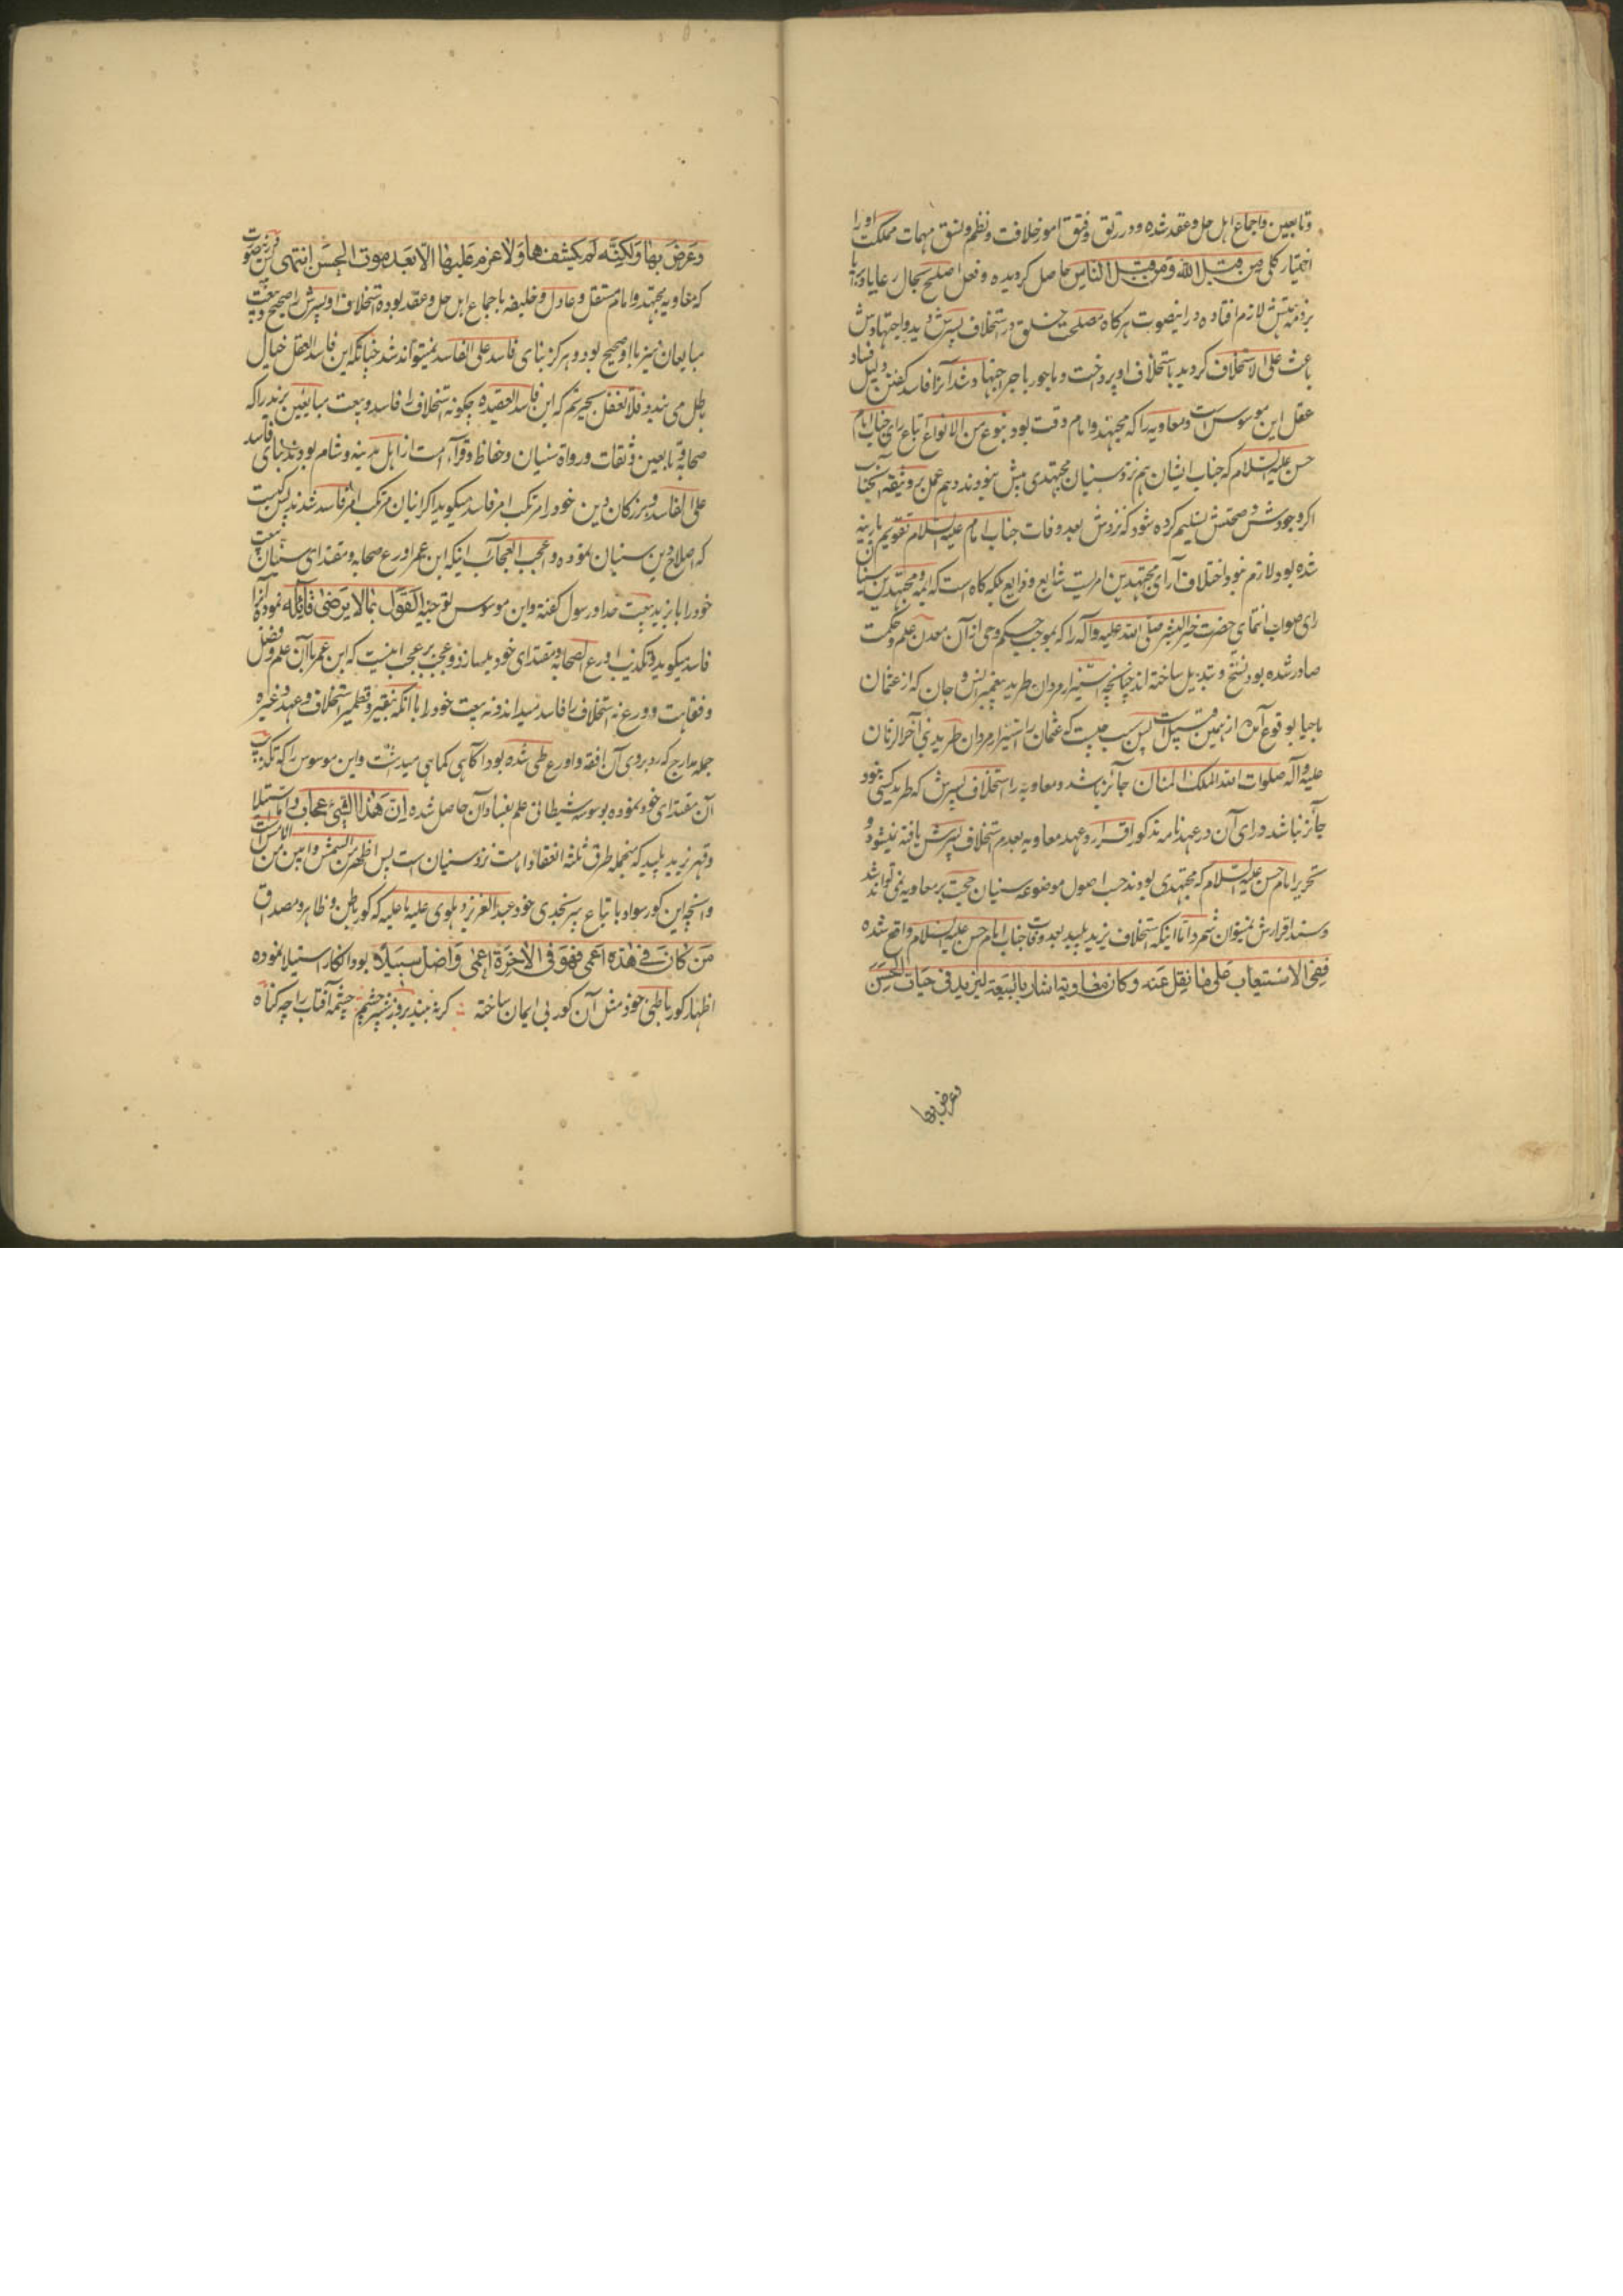 وتابعین واجماع اهل حل وعقد شده ودر رتق وفتق امور خلافت ونظم ونسق مهمات مملکت اورا
اختیار کلی من قبل الله ومن قبل الناس حاصل کردیده وفعل اصلح بحال رعایا وبرایا
بر ذمه لازم افتاده درینصورت هرکاه مصلحت خلق در استخلاف پسرش دید واجتهادش
باعث علی الاستخلاف کردید باستخلاف او پرداخت وماجور باجر اجتهاد شد آنرا فاسد کفتن دلیل فساد
عقل این موسوس است ومعاویه را که مجتهد وامام وقت بود بنوع من الانواع اتباع رای جناب امام
حسن علیه السلام که جناب ایشان هم نزد سنیان مجتهدی بیش نبودند وهم عمل بر وثیقه آنجناب
اکر وجودش وصحتش تسلیم کرده شود که نزدش بعد وفات جناب امام علیه السلام تقویم پارینه
شده بود لازم نبود اختلاف آرای مجتهدین امریست شایع وذایع بلکه کاه است که ایمه ومجتهدین سنیان
رای صواب انتمای حضرت خیر البشر صلی الله علیه وآله را که بموجب حکم وحی از آن معدن علم وحکمت
صادر شده بود نسخ وتبدیل ساخته اند چنانچه استیزار مروان طرید پیغمبر انس وجان که از عثمان
باحیا بوقوع آمد از همین قبیل است پس سبب چیست که عثمان را استیزار مروان طرید نبی آخر الزمان
علیه وآله صلوات الله الملک المنان جائز باشد ومعاویه را استخلاف پسرش که طرید کسی نبود
جائز نباشد ورای آن در عهدنامه مذکور اقرار وعهد معاویه بعدم استخلاف پسرش یافته نمیشود و
تحریر امام حسن علیه السلام که مجتهدی بودند حسب اصول موضوعه سنیان حجت بر معاویه نمی تواند شد
وسند اقرارش نمیتوان شمرد اما اینکه استخلاف یزید پلید بعد وفات جناب امام حسن علیه السلام واقع شده
ففی الاستیعاب علی ما نقل عنه وکان معاویة اشار بالبیعة لیزید فی حیات الحسن
وعرض بها
وعرض بها ولکنه لم یکشفها ولا عزم علیها الا بعد موت الحسن انتهی درین صورت
که معاویه مجتهد وامام مستقل وعادل وخلیفه باجماع اهل حل وعقد بوده استخلاف او پسرش را صحیح وبیعت
مبایعان نیز با او صحیح بود وهرکز بنای فاسد علی الفاسد نمیتواند شد چنانکه این فاسد العقل خیال
باطل می بندد فلا تغفل بحیرتم که این فاسد العقیده چکونه استخلاف را فاسد وبیعت مبایعین یزید را که
صحابه وتابعین وثقات ورواة سنیان وحفاظ وقراء امت از اهل مدینه وشام بودند بنای فاسد
علی الفاسد وبزرکان دین خود را مرتکب امر فاسد میکوید اکر اینان مرتکب امر فاسد شدند پس کیست
که اصلاح دین سنیان نموده واعجب العجائب اینکه ابن عمر اورع صحابه ومقتدای سنیان بیعت
خود را با یزید بیعت خدا ورسول کفته واین موسوس توجیه القول بما لا یرضی قائله نموده آنرا
فاسد میکوید وتکذیب اورع الصحابه ومقتدای خود میسازد وعجب بر عجب اینست که ابن عمر با آن علم وفضل
وفقاهت وورع نه استخلاف را فاسد میداند ونه بیعت خود را با آنکه بنقیر وقطمیر استخلاف وعهد وغیره
جمله مدارج که روبروی آن افقه واورع طی شده بود آکاهی کماهی میداشت واین موسوس را که تکذیب
آن مقتدای خود نموده بوسوسه شیطانی علم بفساد آن حاصل شده ان هذا لشیء عجاب واستیلا
وقهر یزید پلید که منجمله طرق ثلثه انعقاد امامت نزد سنیان است پس اظهر من الشمس وابین من الامس است
وآنچه این کور سواد باتباع پیر نجدی خود عبد العزیز دهلوی علیه ما علیه که کور باطن وظاهر ومصداق
من کان فی هذه اعمی فهو فی الاخرة اعمی واضل سبیلا بود انکار استیلا نموده
اظهار کور باطنی خود مثل آن کور بی ایمان ساخته کر نه بیند بروز شپره چشم چشمه آفتاب را چه کناه